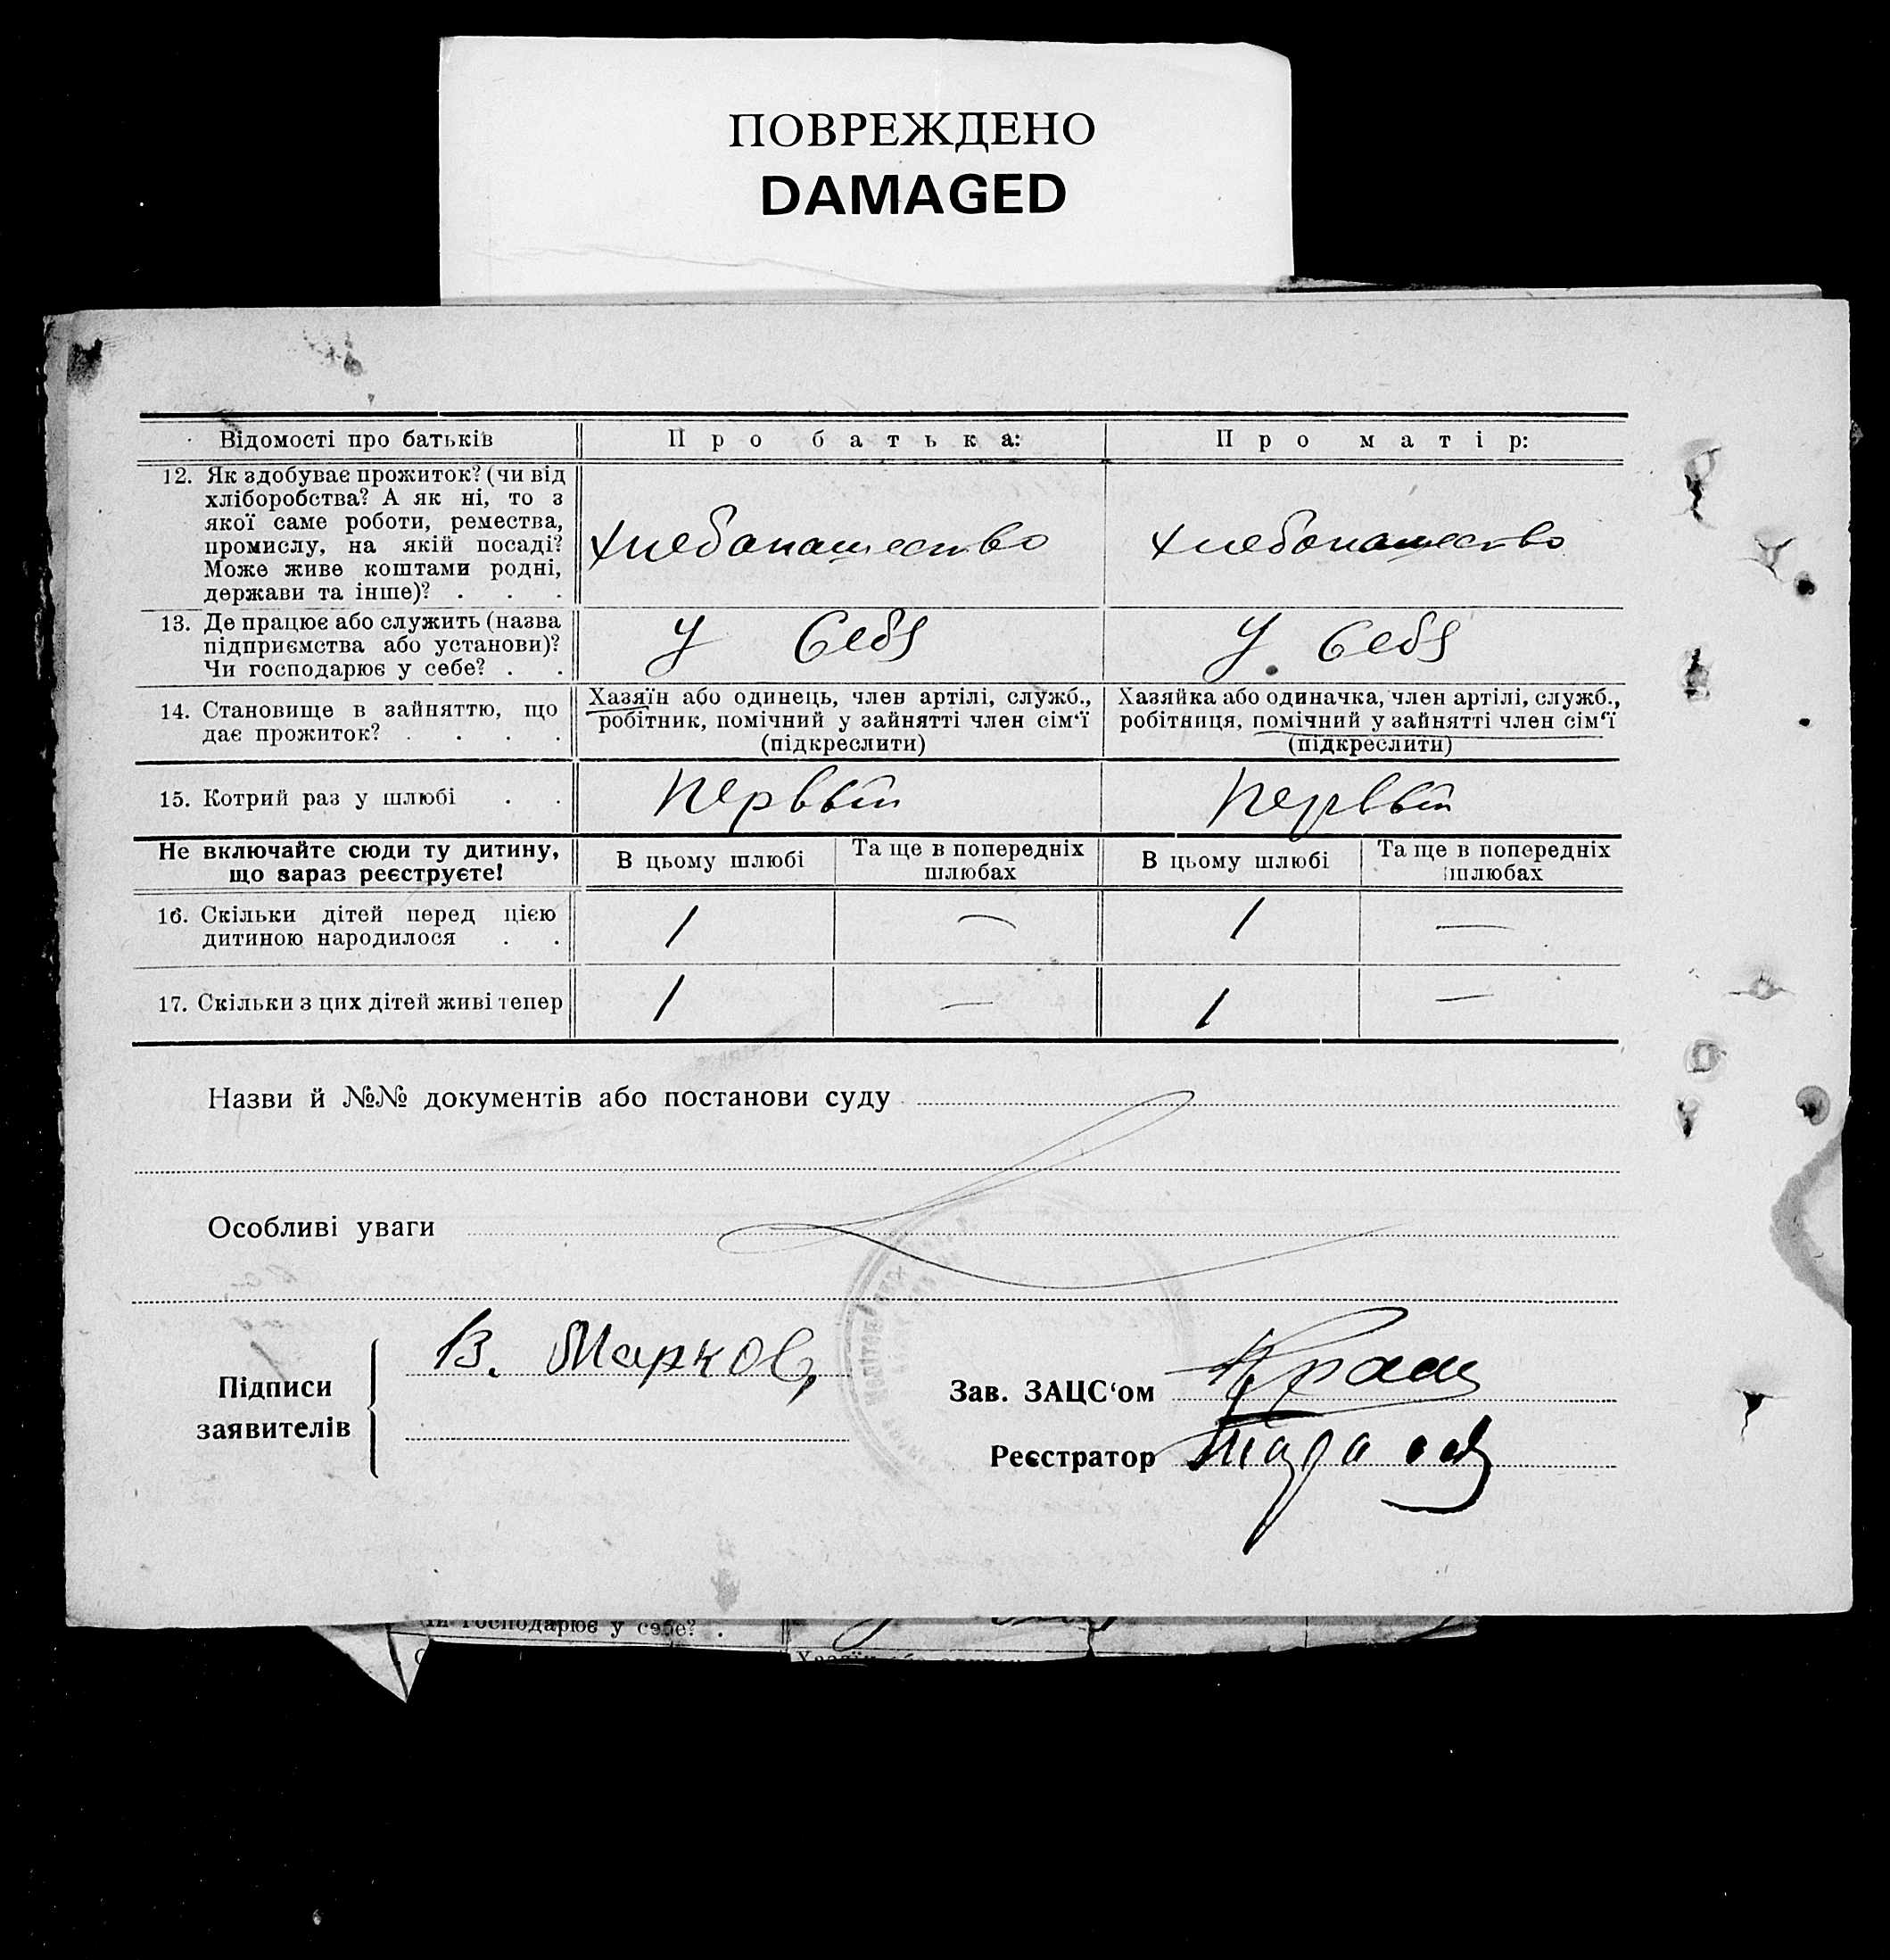 ПОВРЕЖДЕНО
DAMAGED
Відомості про батьків
Про батька:
Про матір:
12. Як здобуває прожиток? (чи від
хліборобства? А як ні, то з
якої саме роботи, ремества,
промислу, на якій посаді?
Може живе коштами родні,
держави та інше)? . . .
хлебопашество
хлебопашество
13. Де працює або служить (назва
підприємства або установи)?
Чи господарює у себе? . .
У себя
У себя
14. Становище в зайняттю, що
дає прожиток? . . . .
Хазяїн або одинець, член артілі, служб.,
робітник, помічний у зайнятті член сім'ї
(підкреслити)
Хазяйка або одиначка, член артілі, служб.,
робітниця, помічний у зайнятті член сім'ї
(підкреслити)
15. Котрий раз у шлюбі . .
Первый
Первый
Не включайте сюди ту дитину,
що зараз реєструєте!
В цьому шлюбі
Та ще в попередніх
шлюбах
В цьому шлюбі
Та ще в попередніх
шлюбах
16. Скільки дітей перед цією
дитиною народилося . .
1 — 1 —
17. Скільки з цих дітей живі тепер
1 — 1 —
Назви й №№ документів або постанови суду
Особливі уваги
Підписи
заявителів
В. Марков
Зав. ЗАЦС'ом
Реєстратор
чи господарює у себе? .